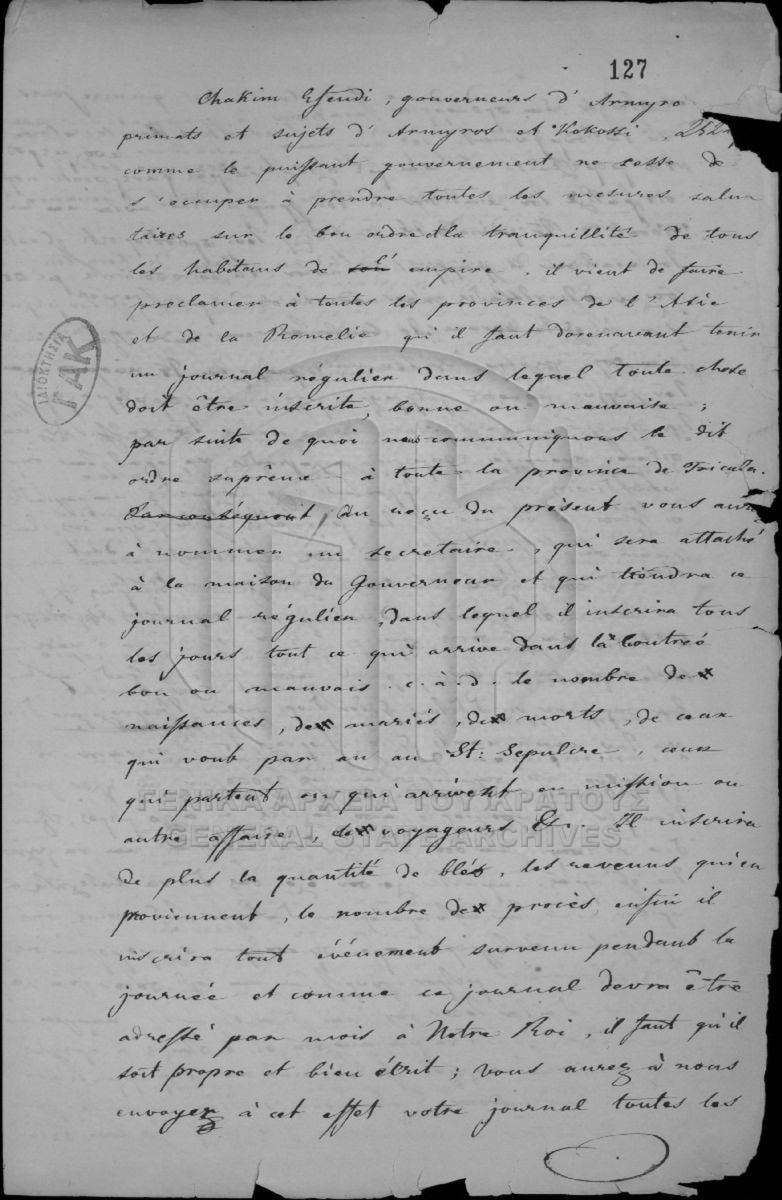 127
Chakim Efendi, gouverneurs d'Armyro
primats et sujets d'Armyros et Kokossi,
comme le puissant gouvernement ne cesse de
s'occuper à prendre toutes les mesures salu
taires sur le bon ordre et la tranquillité de tous
les habitans de son l' empire, il vient de faire
proclamer à toutes les provinces de l'Asie
et de la Romelie qu'il faut dorenavant tenir
un journal régulier dans lequel toute chose
doit être inscrite, bonne ou mauvaise;
par suite de quoi nous communiquons le dit
ordre suprême à toute la province de Tricala.
Par conséquent, Au reçu du présent vous aurez
à nommer un secretaire, qui sera attaché
à la maison du Gouverneur et qui tiendra ce
journal régulier, dans lequel il inscrira tous
les jours tout ce qui arrive dans la Contreé
bon ou mauvais c. à. d. le nombre de
naissances, de mariés, de morts, de ceux
qui vont par an au St: Sepulcre, ceux
qui partent ou qui arrivent en mission ou
autre affaire, de voyageurs &c. Il inscrira
de plus la quantité de blé, les revenus qui en
proviennent, le nombre de procès, enfin il
inscrira tout événement survenu pendant la
journée et comme ce journal devra être
adressé par mois à Notre Roi, il faut qu'il
soit propre et bien écrit; vous aurez à nous
envoyer à cet effet votre journal toutes les
ΙΔΙΟΚΤΗΣΙΑ
ΓΑΚ
ΓΕΝΙΚΑ ΑΡΧΕΙΑ ΤΟΥ ΚΡΑΤΟΥΣ
GENERAL STATE ARCHIVES